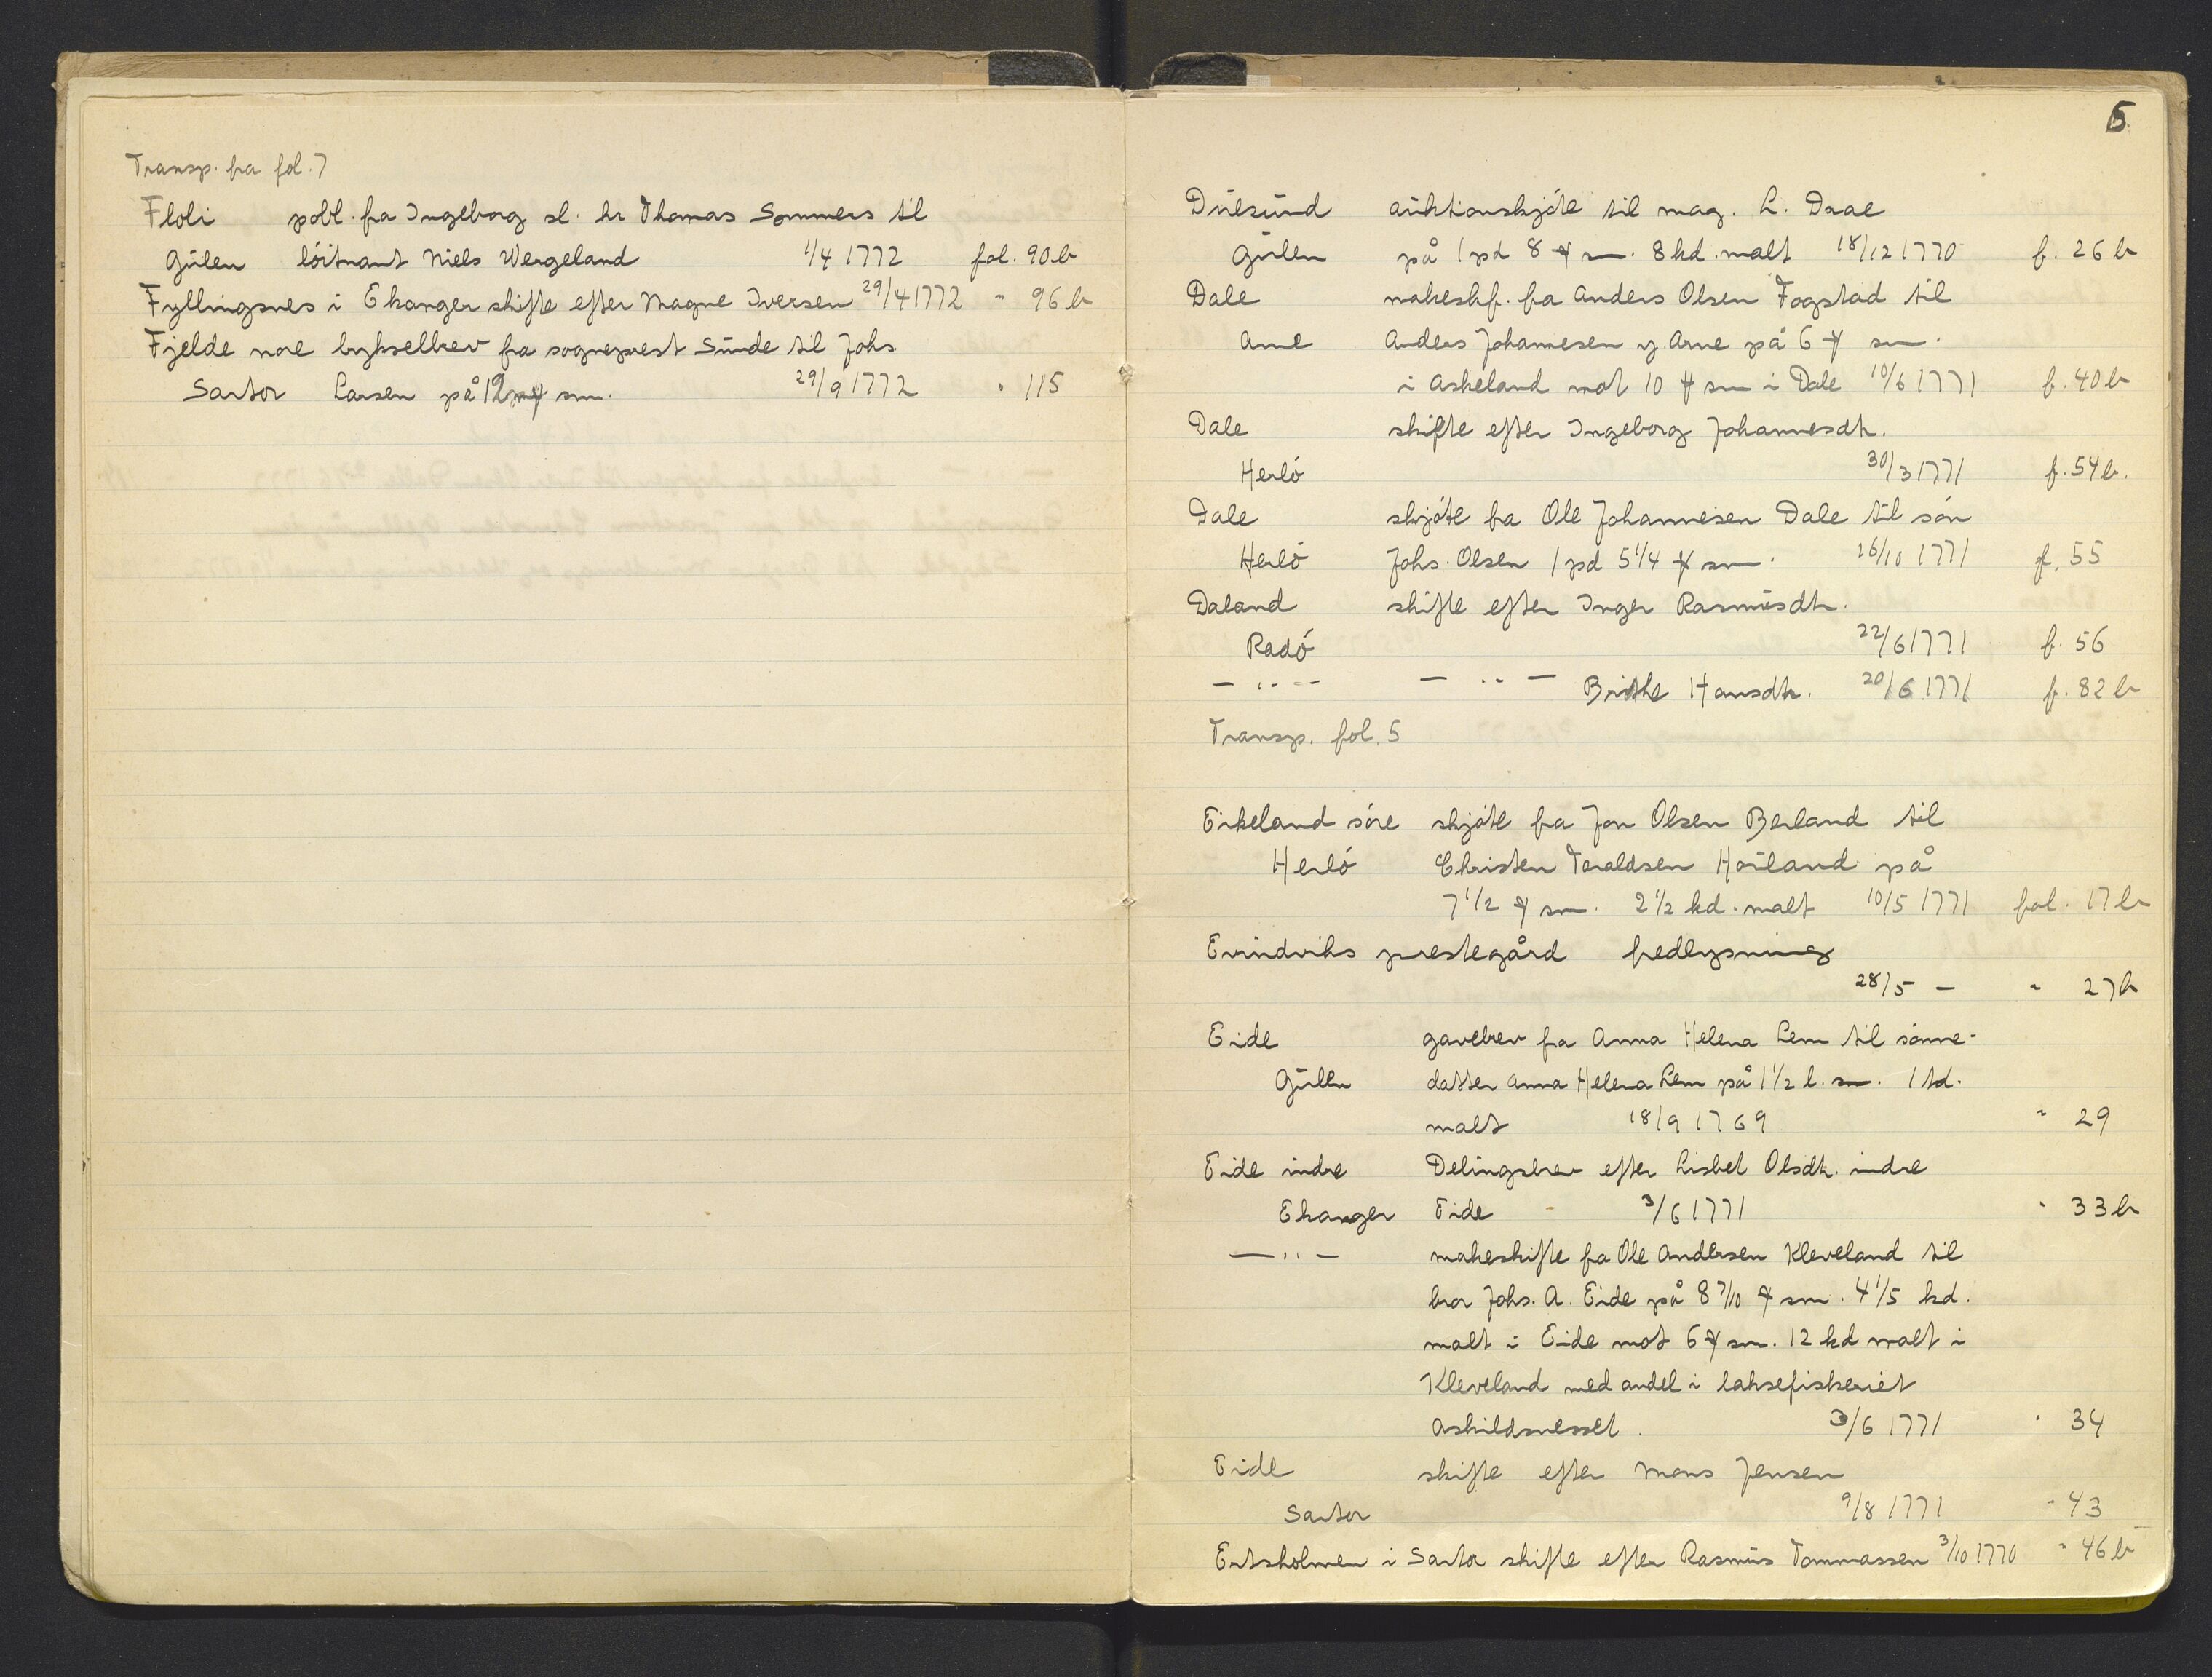 Transp. fra fol. 7
Floli pobl. fra Ingeborg sl. hr Thomas Sommers til
Gulen löitnant Niels Wergeland 1/4 1772 fol. 90 b
Fyllingsnes i Ekanger skifte efter Magne Iversen 29/4 1772 " 96 b
Fjelde nore bykselbrev fra sogneprest Sunde til Johs
Sartor Larsen på 12 ♃ sm. 29/9 1772 " 115
5
Duesund auktionskjöte til mag. L. Daae
Gulen på 1 pd 8 ♃ sm. 8 kd. malt 18/12 1770 f. 26 b
Dale makeskf. fra Anders Olsen Fogstad til
Arne Anders Johannesen y. Arne på 6 ♃ sm.
i Askeland mot 10 ♃ sm i Dale 10/6 1771 f. 40 b
Dale skifte efter Ingeborg Johannesdtr.
Herlö 30/3 1771 f. 54 b.
Dale skjöte fra Ole Johannesen Dale til sön
Herlö Johs. Olsen 1 pd 5 1/4 ♃ sm. 26/10 1771 f. 55
Daland skifte efter Inger Rasmusdtr.
Radö 22/6 1771 f. 56
— " — — " — Brithe Hansdtr. 20/6 1771 f. 82 b
Transp. fol. 5
Eikeland söre skjöte fra Jon Olsen Berland til
Herlö Christen Taraldsen Hauland på
7 1/2 ♃ sm. 2 1/2 kd. malt 10/5 1771 fol. 17 b
Evindviks prestegård fredlysning
28/5 — " 27 b
Eide gavebrev fra Anna Helena Lem til sönne-
Gulen datter Anna Helena Lem på 1 1/2 l. sm. 1 td.
malt 18/9 1769 " 29
Eide indre Delingsbrev efter Lisbet Olsdtr. indre
Ekanger Eide 3/6 1771 " 33 b
— " — makeskifte fra Ole Andersen Kleveland til
bror Johs. A. Eide på 8 7/10 ♃ sm. 4 1/5 kd.
malt i Eide mot 6 ♃ sm. 12 kd malt i
Kleveland med andel i laksefiskeriet
Askildsnesset. 3/6 1771 " 34
Eide skifte efter Mons Jensen
Sartor 9/8 1771 " 43
Ertsholmen i Sartor skifte efter Rasmus Tommassen 3/10 1770 " 46 b